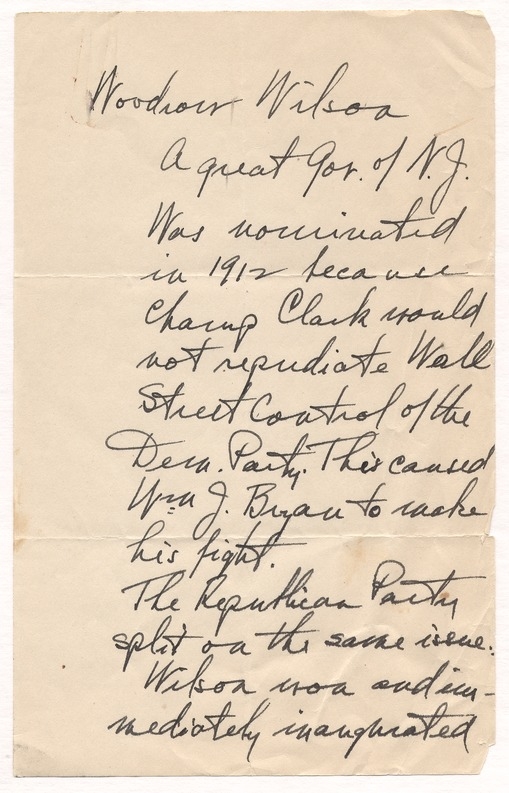 Woodrow Wilson
A great Gov. of N.J.
Was nominated
in 1912 because
Champ Clark would
not repudiate Wall
Street Control of the
Dem. Party. This caused
Wm J. Bryan to make
his fight.
The Republican Party
split on the same issue.
Wilson won and im-
mediately inaugurated